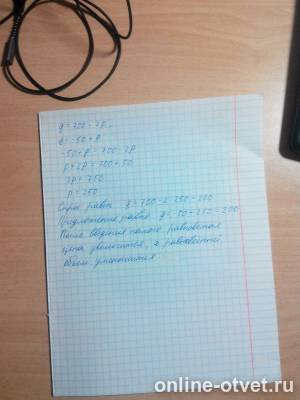 y = 700 - 2P,
y = -50 + P
-50 + P = 700 - 2P
P + 2P = 700 + 50
3P = 750
P = 250
Спрос равен y = 700 - 2·250 = 200
Предложение равно y = -50 + 250 = 200
После введения налога равновесная
цена увеличится, а равновесный
объем уменьшится
online-otvet.ru